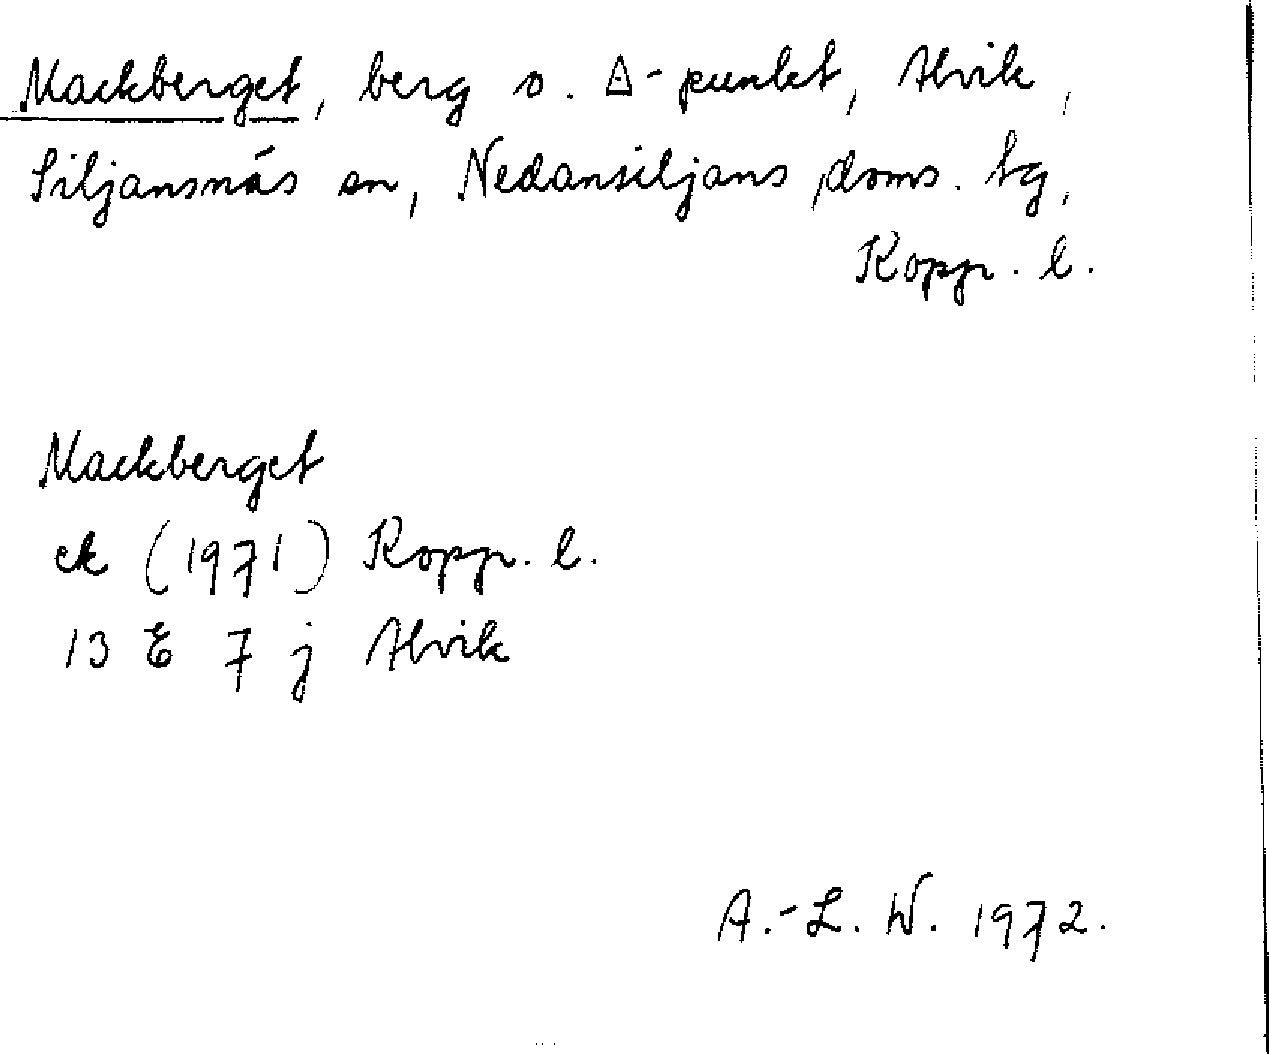 Mackberget, berg o. △-punkt, Alvik,
Siljansnäs sn, Nedansiljans doms. tg,
Kopp. l.
Mackberget
ek (1971) Kopp. l.
13 E 7 j Alvik
A.-L. W. 1972.